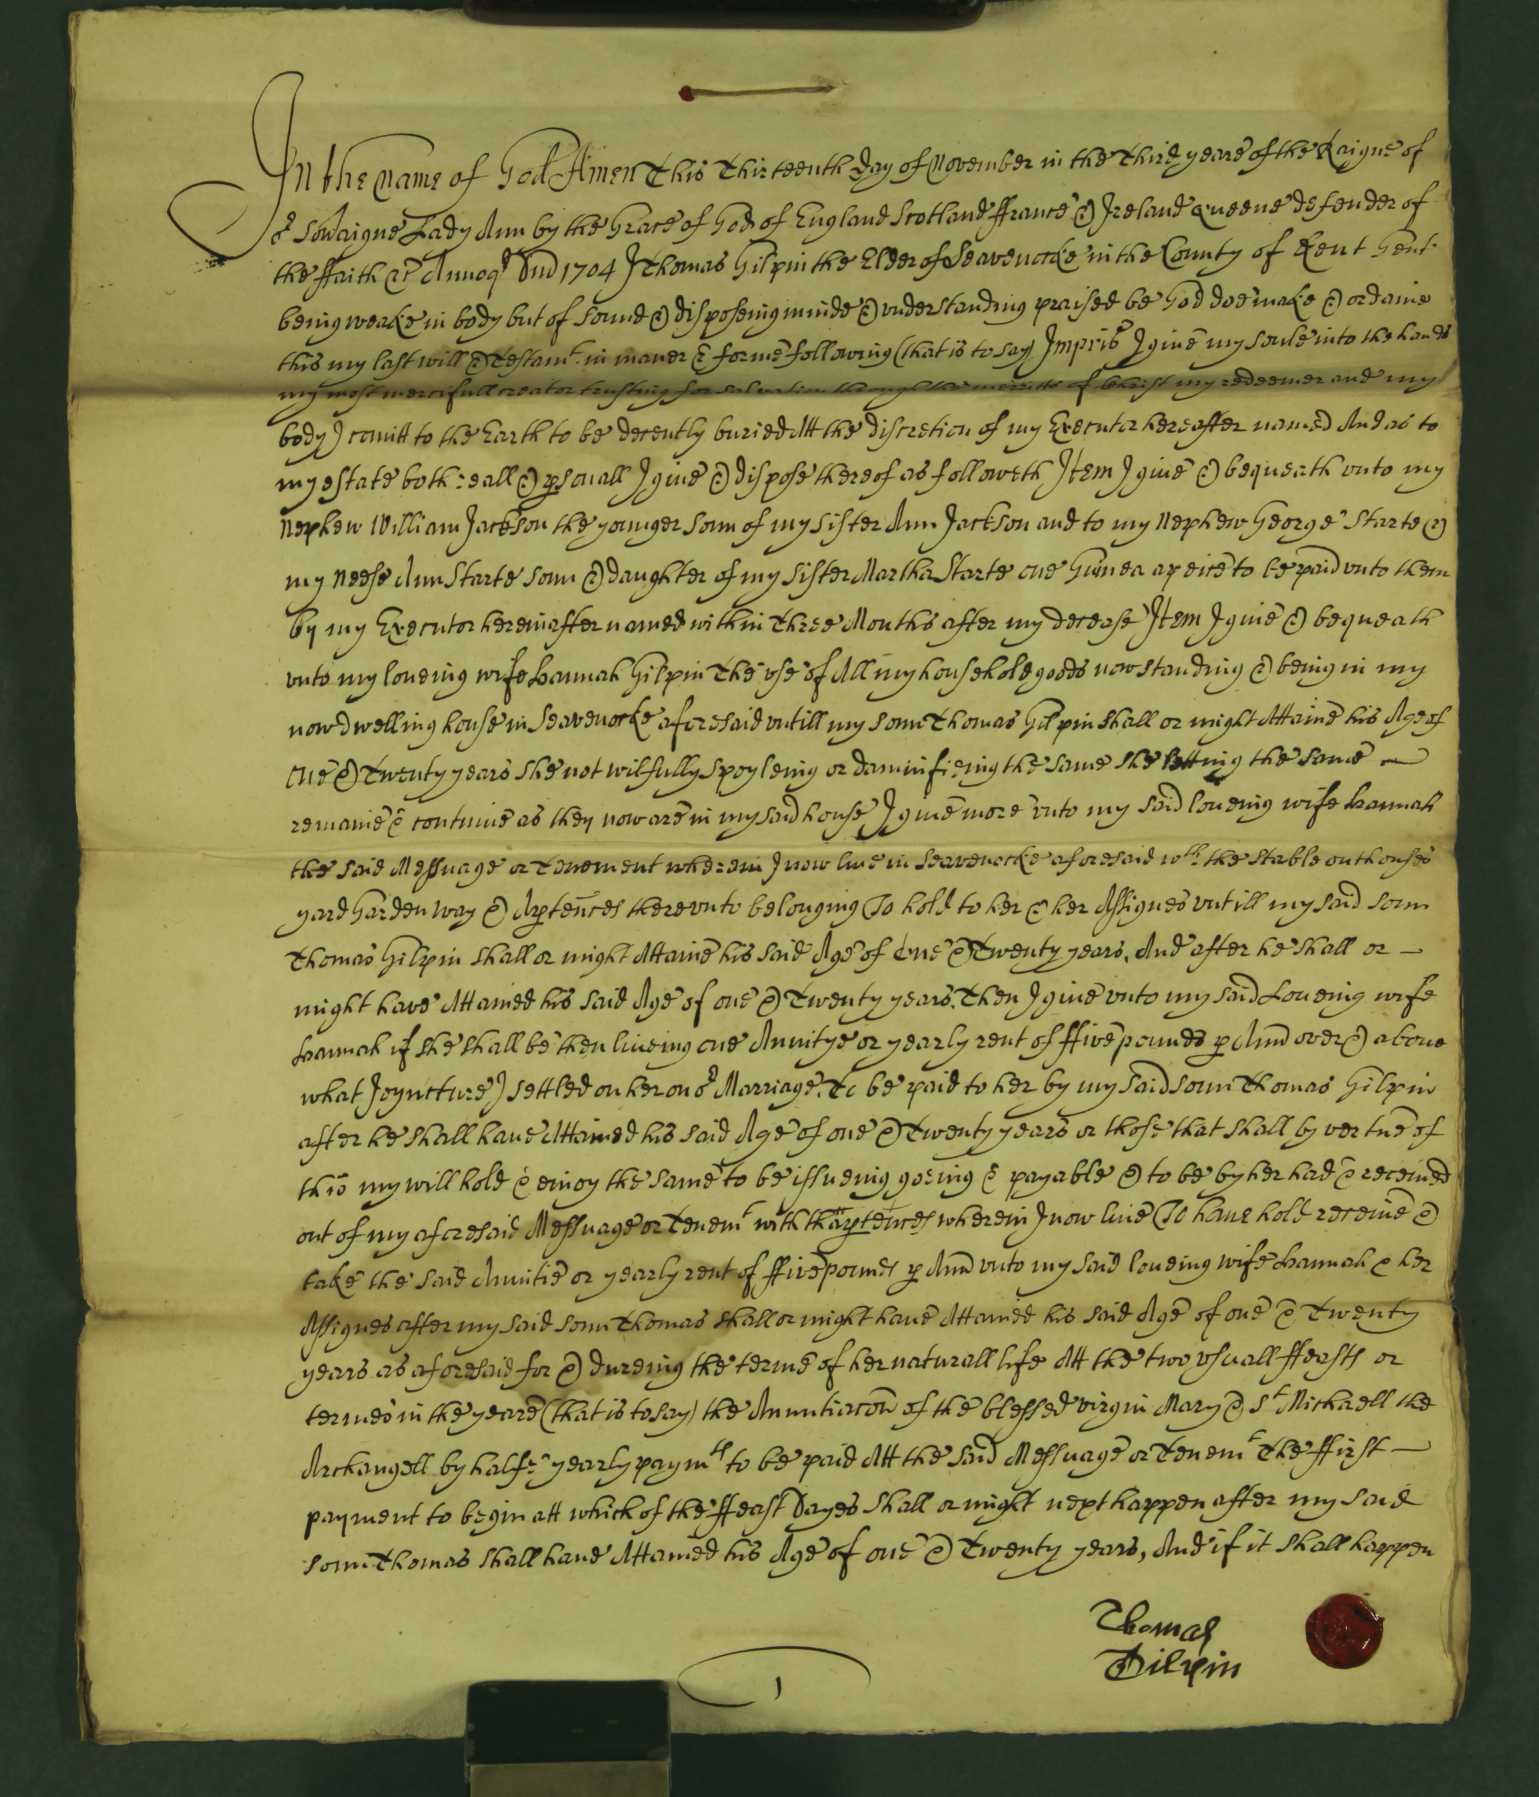 In the Name of God Amen This Thirteenth Day of November in the Third yeare of the Raigne of
or Sovaigne Lady Ann by the Grace of God of England Scotland ffrance & Ireland Queene defender of
the ffaith &c Annoq Dnd 1704 I Thomas Gilpin the Elder of Seavenocke in the County of Kent Gent
being weake in body but of sound & disposeing minde & understanding praised be God doe make & ordaine
this my last will & Testamt in maner & forme following (that is to say) Impris I give my soule into the hands
my most mercifull creator trusting for salvation through the meritts of Christ my redeemer and my
body I comitt to the Earth to be decently buried Att the discretion of my Executor hereafter named And as to
my estate both reall & psonall I give & dispose thereof as followeth Item I give & bequeath vnto my
Nephew William Jackson the younger sonn of my sister Ann Jackson and to my Nephew George Starte &
my Neese Ann Starte sonn & daughter of my sister Martha Starte one Guinea apeice to be paid vnto them
by my Executor hereinafter named within Three Months after my decease Item I give & bequeath
vnto my loveing wife Hannah Gilpin The vse of All my household goods now standing & being in my
now dwelling house in Seavenocke aforesaid vntill my sonn Thomas Gilpin shall or might Attaine his Age of
one & Twenty years she not wilfully spoyleing or damnifieing the same she letting the same
remaine & continue as they now are in my said house I give more vnto my said loveing wife Hannah
the said Messuage or Tenement wherein I now live in Seavenocke aforesaid wth the stable outhouses
yard Garden way & Aptences therevnto belonging To hold to her & her Assignes vntill my said sonn
Thomas Gilpin shall or might Attaine his said Age of one & Twenty years, And after he shall or
might have Attained his said Age of one & Twenty years, Then I give vnto my said Loveing wife
Hannah if she shall be then liveing one Anuitye or yearly rent of ffive pounds p Ann over & above
what Joyncture I settled on her on or Marriage, To be paid to her by my said sonn Thomas Gilpin
after he shall have Attained his said Age of one & Twenty years or those that shall by vertue of
this my will hold & enioy the same to be issueing goeing & payable & to be by her had & received
out of my aforesaid Messuage or Tenemt with thaptences wherein I now live To have hold receive &
take the said Anuitie or yearly rent of ffive pounds p Ann vnto my said loveing wife Hannah & her
Assignes after my said sonn Thomas shall or might have Attained his said Age of one & Twenty
years as aforesaid for & dureing the terme of her naturall life Att the two vsuall ffeasts or
termes in the yeare (that is to say) the Anuntiacon of the blessed virgin Mary & St Michaell the
Archangell by halfe yearly paymts to be paid Att the said Messuage or Tenemt The ffirst
payment to begin att which of the ffeast Dayes shall or might next happen after my said
sonn Thomas shall have Attained his Age of one & Twenty years, And if it shall happen
Thomas
Gilpin
1